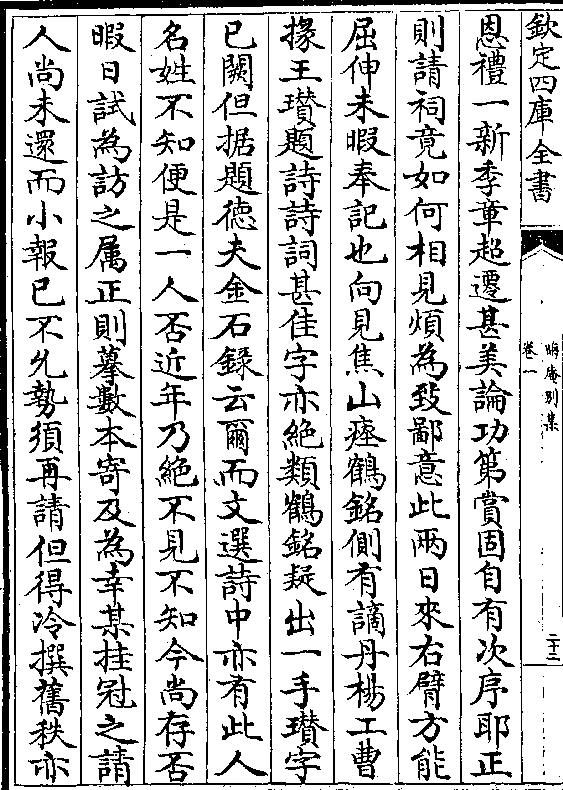 欽定四庫全書
晦庵別集
卷一
二十二
恩禮一新季章超遷甚美論功第賞固自有次序耶正
則請祠竟如何相見煩為致鄙意此兩日來右臂方能
屈伸未暇奉記也向見焦山瘞鶴銘側有謫丹楊工曹
掾王瓚題詩詩詞甚佳字亦絶類鶴銘疑出一手瓚字
已闕但据題德夫金石錄云爾而文選詩中亦有此人
名姓不知便是一人否近年乃絶不見不知今尚存否
暇日試為訪之属正則摹數本寄及為幸某挂冠之請
人尚未還而小報已不允勢須再請但得冷撰舊秩亦